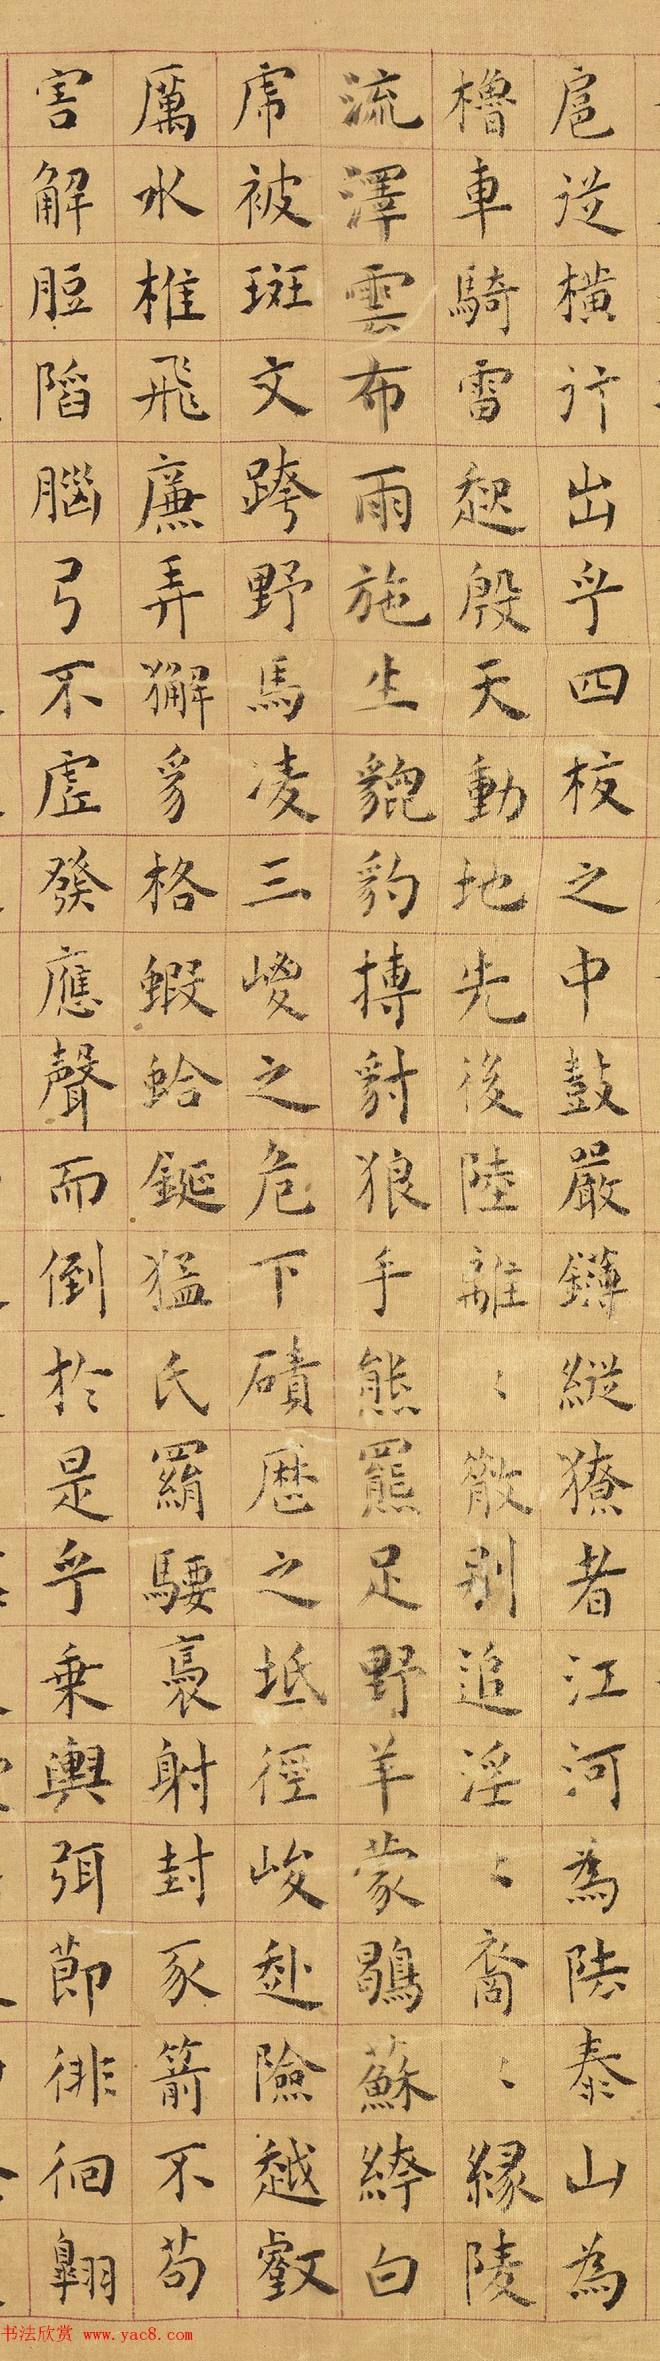 扈從橫行出乎四校之中鼓嚴簿縱獠者江河為阹泰山為
櫓車騎雷起殷天動地先後陸離〻散別追淫〻裔〻緣陵
流澤雲布雨施生貔豹搏豺狼手熊羆足野羊蒙鶡蘇絝白
虎被斑文跨野馬凌三嵕之危下磧歷之坻徑峻赴險越壑
厲水椎飛廉弄獬豸格蝦蛤鋋猛氏羂騕褭射封豕箭不苟
害解脰陷腦弓不虛發應聲而倒於是乎乘輿弭節徘徊翱
书法欣赏 www.yac8.com